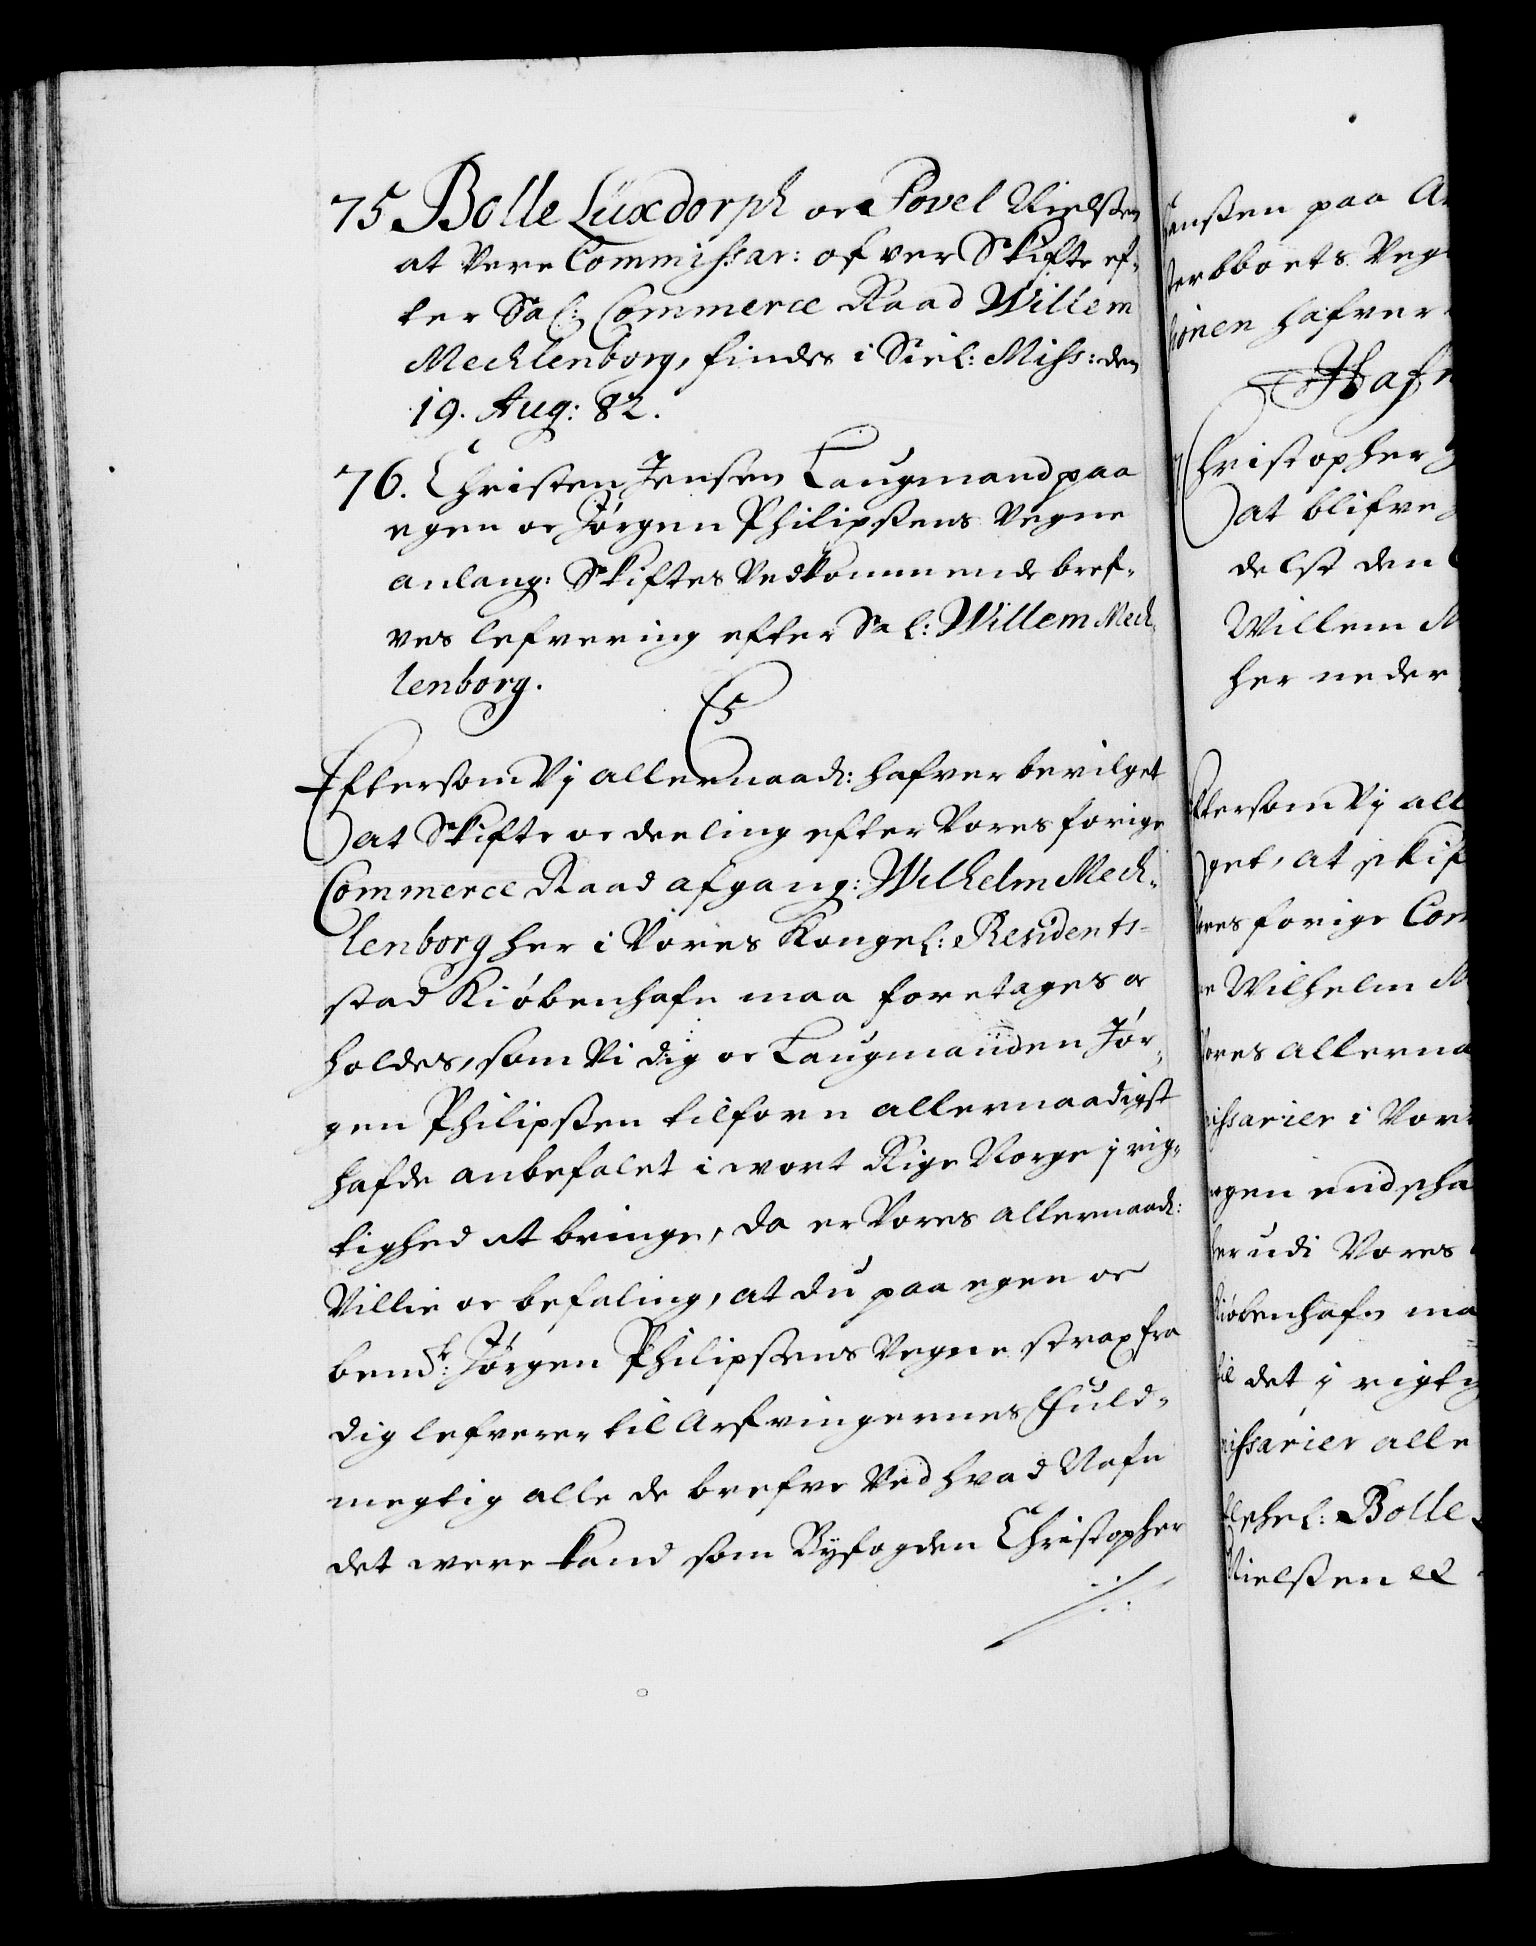 75 Bolle Luxdorph oc Povel Nielßen
at Vere Commissar: ofver Skifte ef-
ter Sal: Commerce Raad Willem
Mechlenborg, findes i Siel: Miss: den
19. Aug: 82.
76. Christen Jensen Laugmand paa
egen oc Jørgen Philipßens Vegne
anlang: Skiftes Vedkommende bref-
ves lefvering efter Sal: Willem Mech-
lenborg.
C5
Eftersom Vj allernaad: hafver bevilget
at Skifte oc deeling efter Vores forige
Commerce Raad afgang: Wilhelm Mech-
lenborg her i Vores Kongel: Residents-
stad Kiøbenhafn maa foretages oc
holdes, som Vi dig oc Laugmanden Jør-
gen Philipßen tilforn allernaadigst
hafde anbefalet i wort Rige Norge j rig-
tighed at bringe, da er Vores allernaad:
Villie oc befaling, at du paa egen oc
bemt: Jørgen Philipßens Vegne strax fra
dig lefverer til Arfvingernes Fuld-
megtig alle de brefve Ved hvad Nafn
det were kand som Byfogden Christopher
ßenßen paa
terbboets Veg
hafver
Haf
Christopher
at blifve
delst den
Willem M
her neder
ftersom Vj all
get, at skif
res forige Com
Wilhelm M
Vores allerna
issarier i Vor
egen
her udi Vores
Kiøbenhafn ma
til det j rigtig
missarier alle
Bolle
Nielßen et